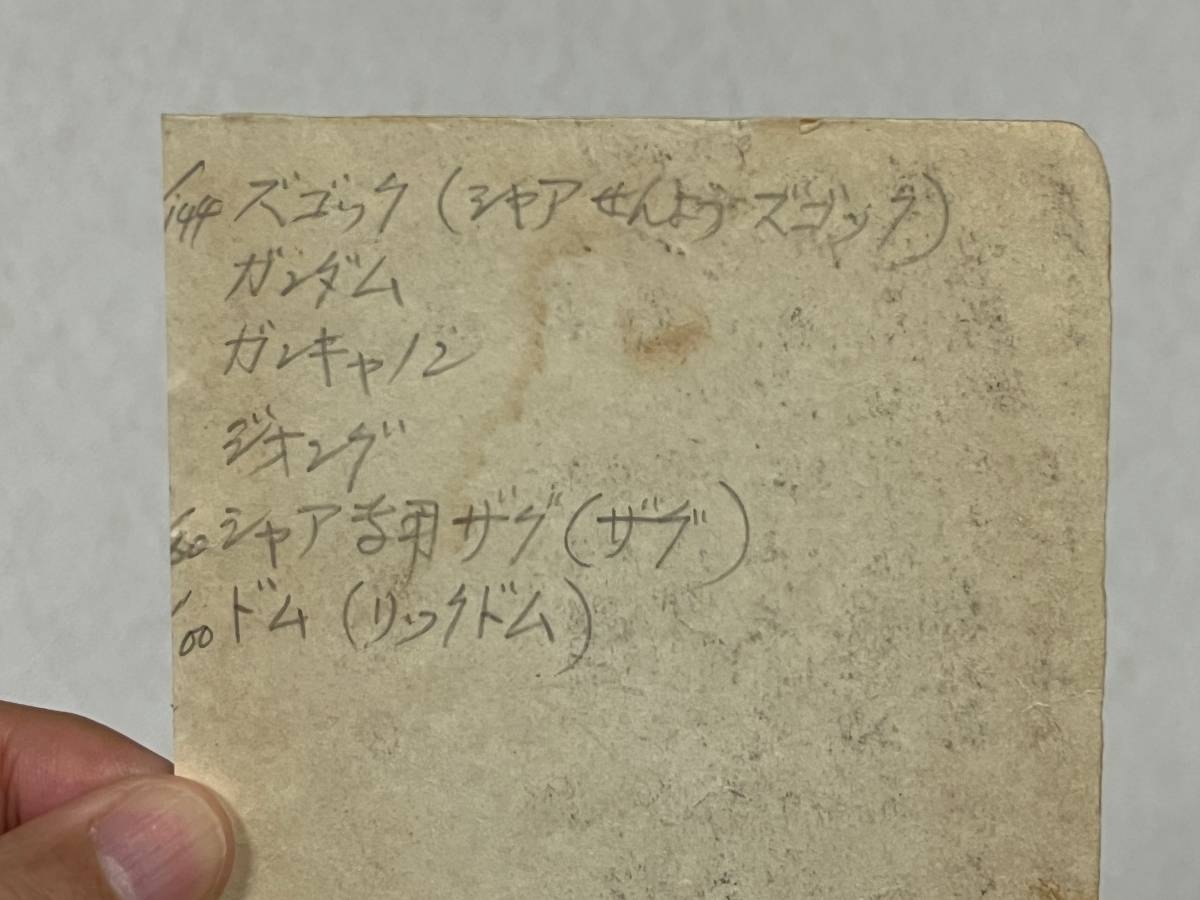 1/144 ズゴック(シャアせんようズゴック)
ガンダム
ガンキャノン
ジオング
1/60 シャア専用ザグ(ザグ)
1/100 ドム(リックドム)